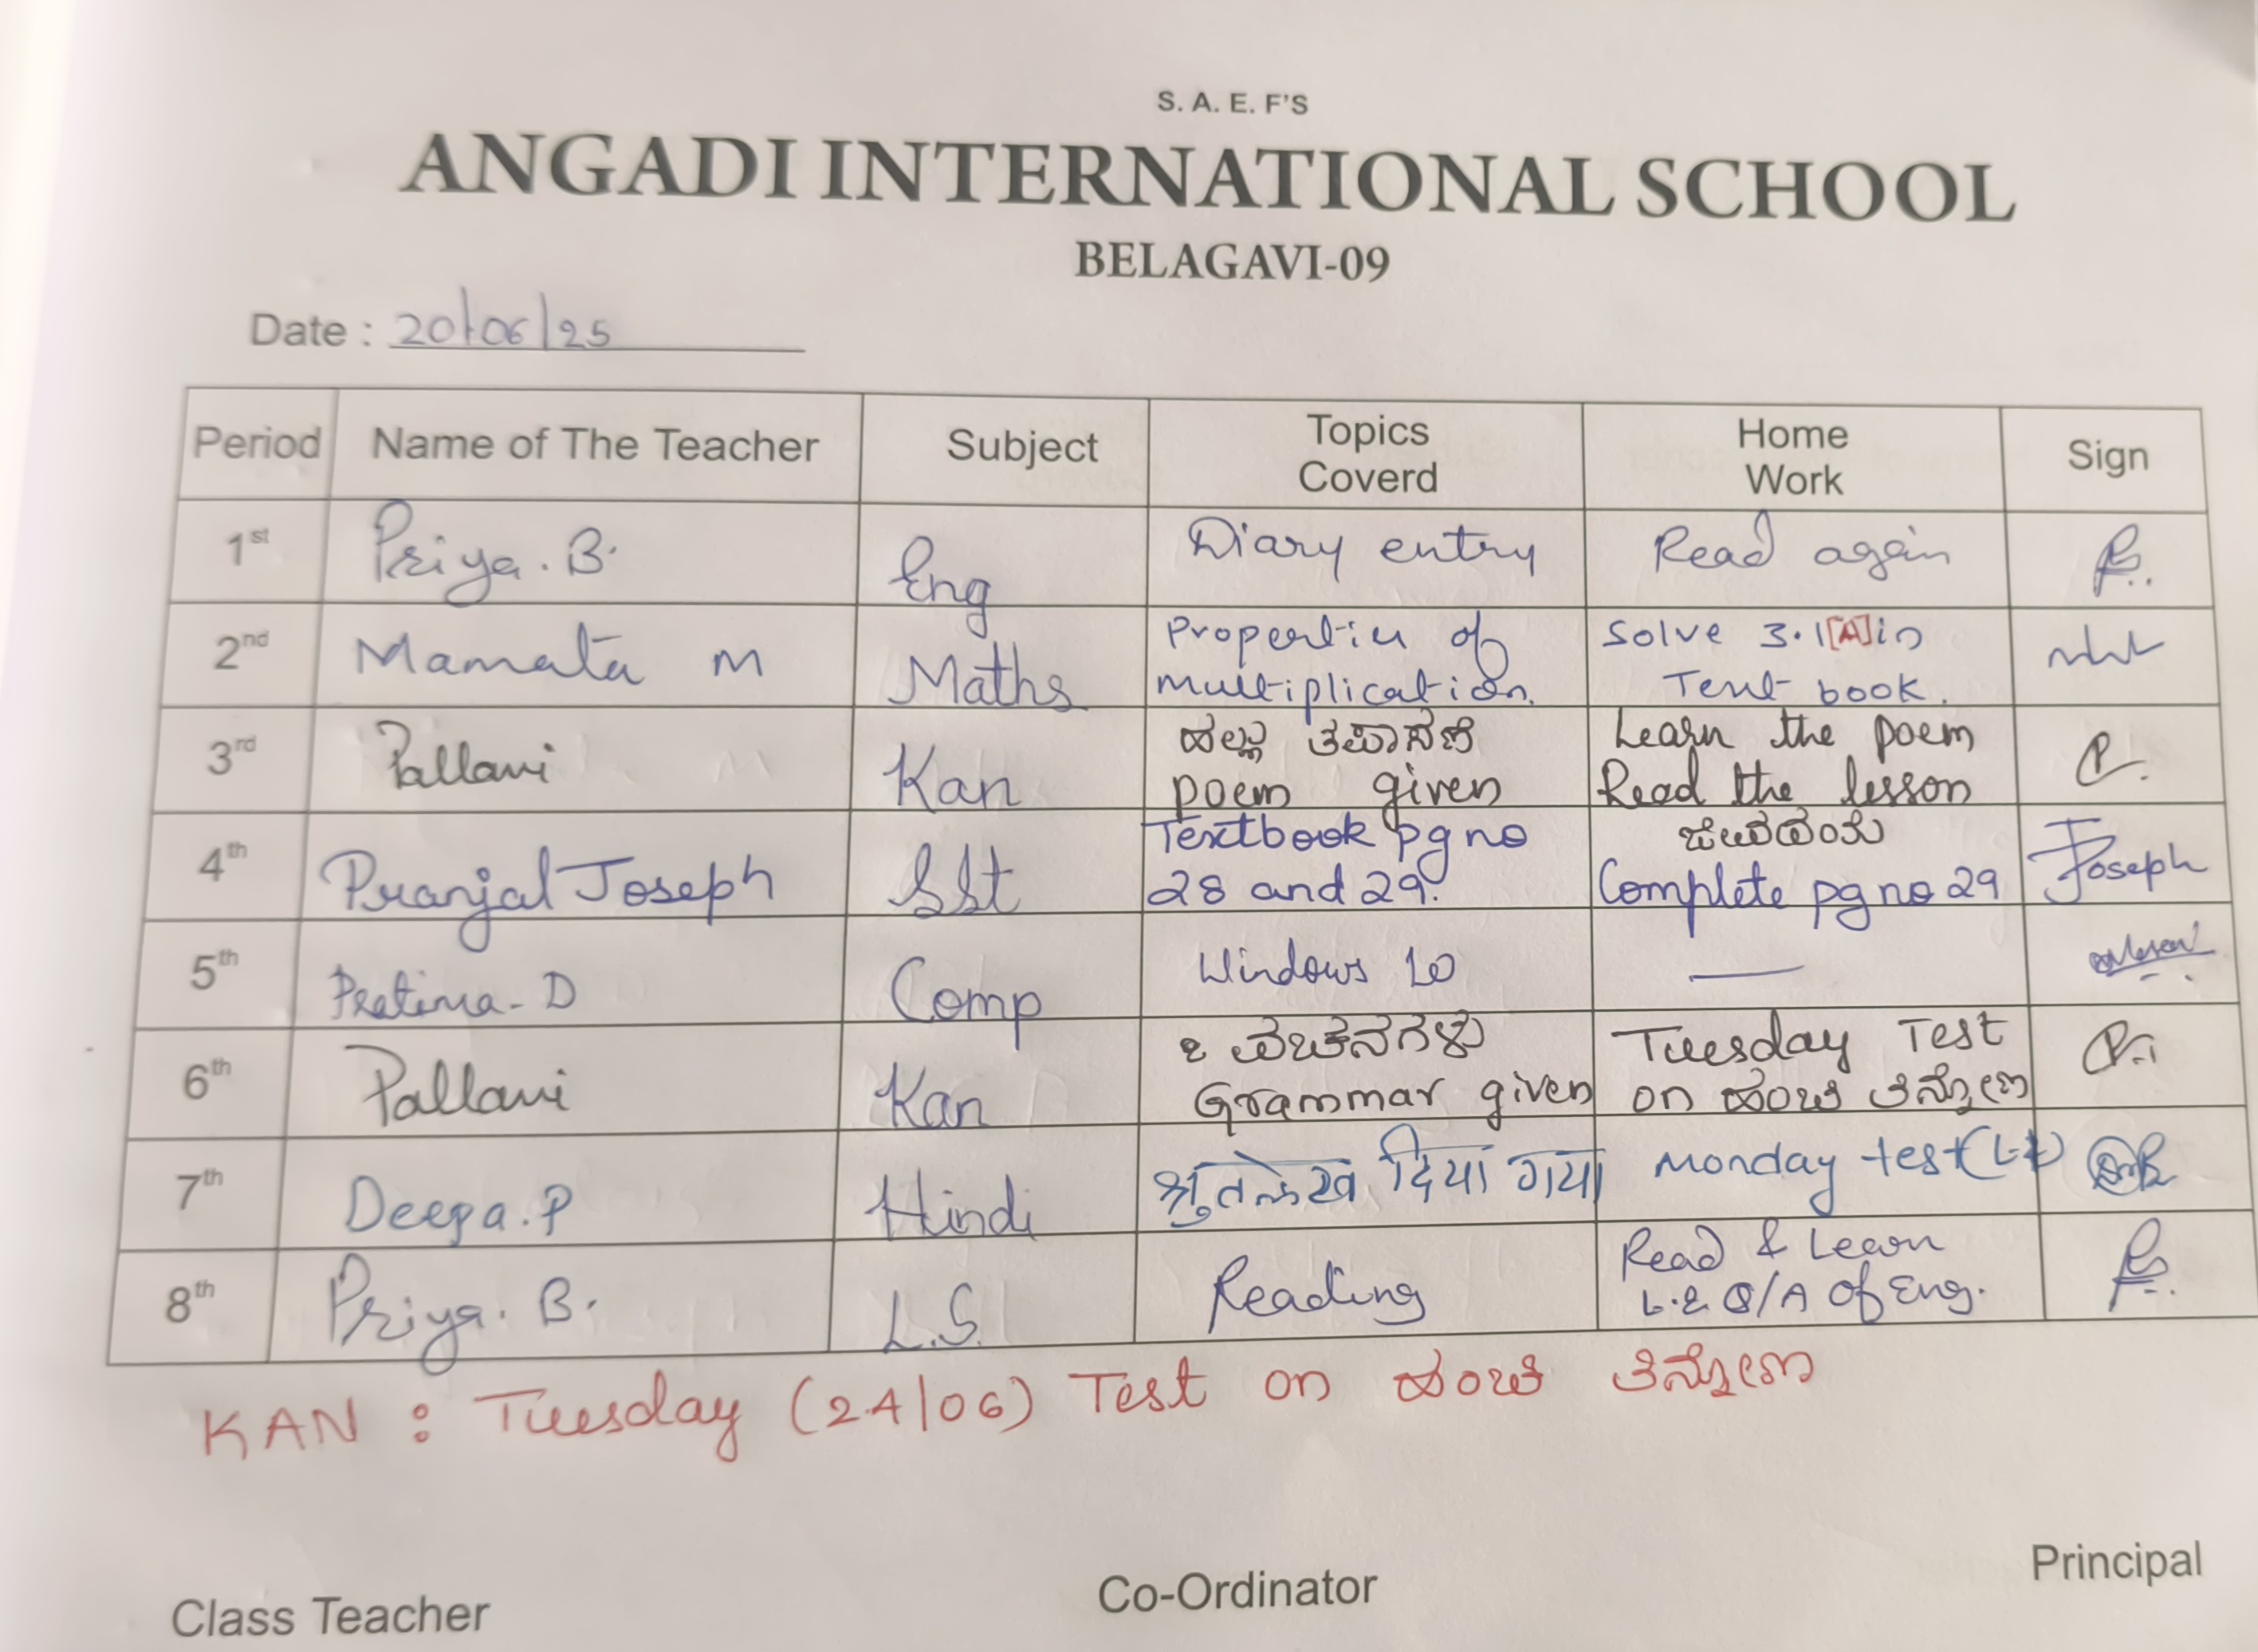 S. A. E. F'S
ANGADI INTERNATIONAL SCHOOL
BELAGAVI-09
Date : 20/06/25
Period Name of The Teacher Subject Topics Coverd Home Work Sign
1st Priya. B. Eng Diary entry Read again
2nd Mamata M Maths Properties of multiplication. Solve 3.1[A] in Text book.
3rd Pallavi Kan ಹಲ್ಲು ತಪಾಸಣೆ poem given Learn the poem Read the lesson
4th Pranjal Joseph SSt Textbook pg no 28 and 29. Complete pg no 29 Joseph
5th Pratima - D Comp Windows 10 —
6th Pallavi Kan Grammar given Tuesday Test on ಹಂಚಿ ತಿನ್ನೋಣ
7th Deepa. P Hindi श्रुतलेख दिया गया Monday test
8th Priya. B. L.S. Reading Read & Learn L.2 Q/A of Eng.
KAN : Tuesday (24/06) Test on ಹಂಚಿ ತಿನ್ನೋಣ
Class Teacher Co-Ordinator Principal